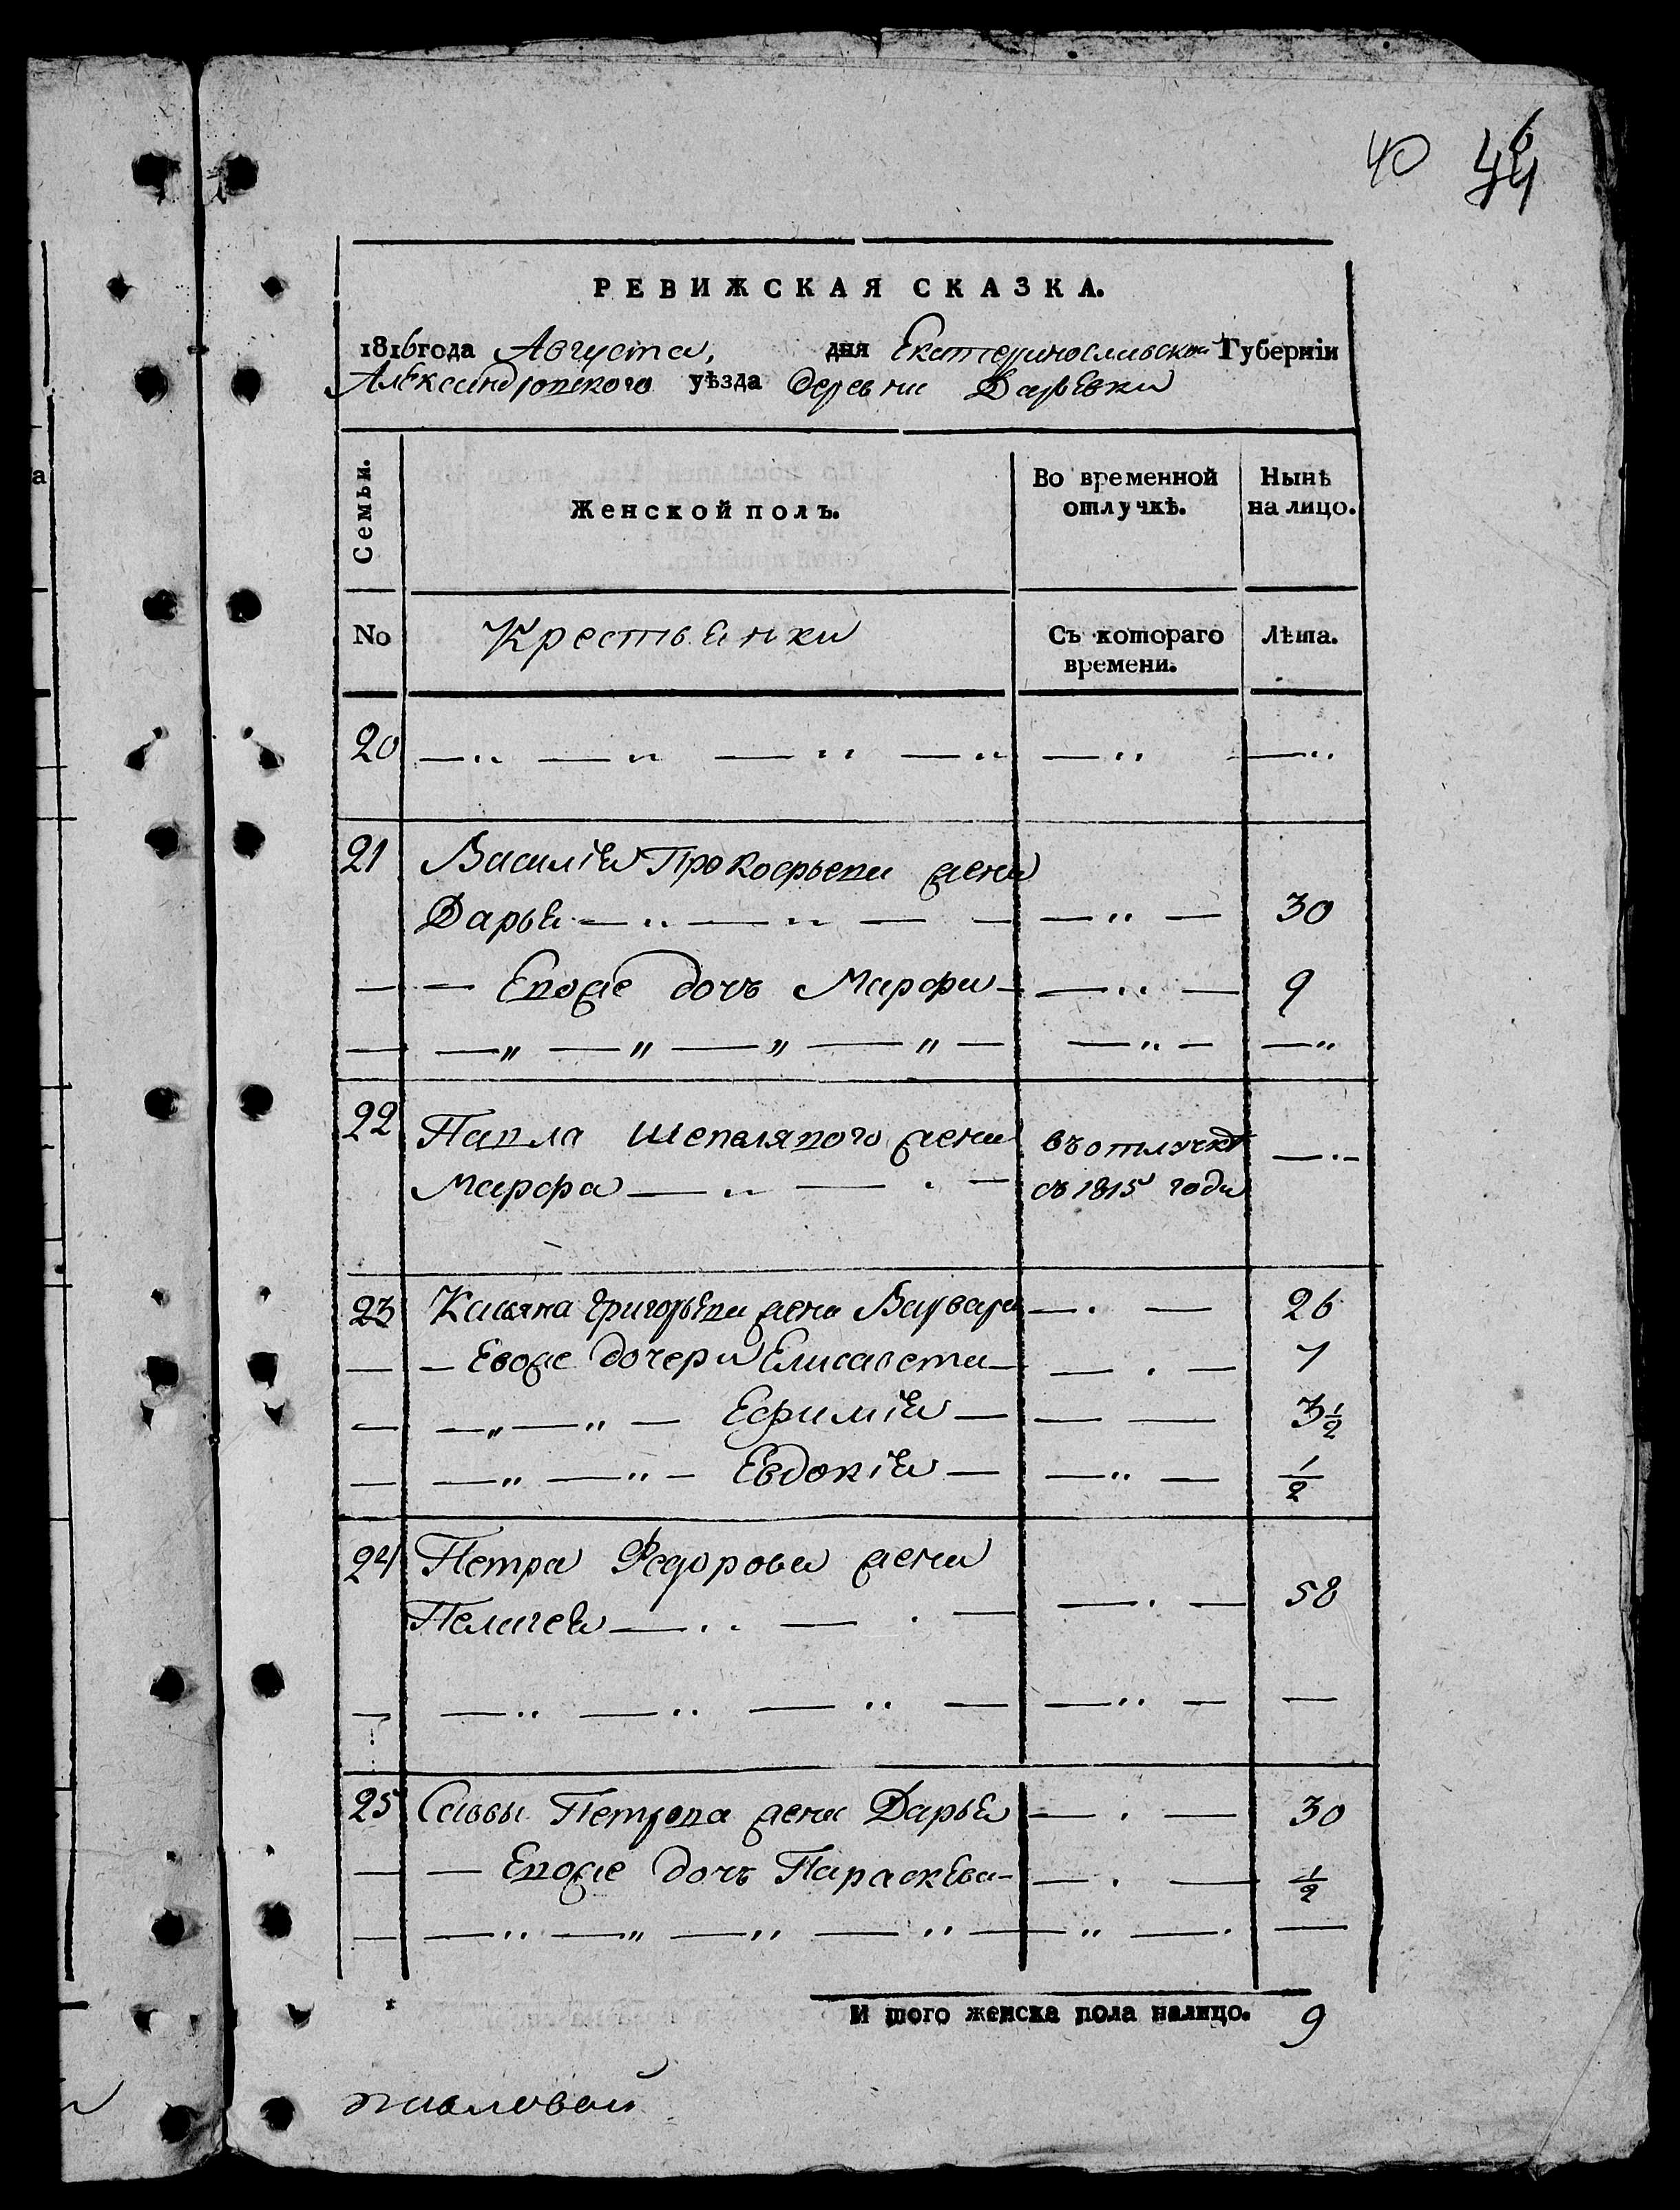 40 46
44
РЕВИЖСКАЯ СКАЗКА.
1816 года Августа, дня Екатеринославской Губерніи
Александровского уѣзда деревни Дарьевки
Семьи. Женской полъ. Во временной отлучкѣ. Нынѣ на лицо.
No Крестьянки Съ котораго времени. Лѣта.
20 — „ — „ — „ — „ — „ — „
21 Василія Прокофьева жена
Дарья — „ — „ — — — „ — 30
— — Евоже дочь Марфа — — „ — 9
— — „ — „ — „ — „ — — „ — — „
22 Павла Шепелявого жена въ отлучкѣ — „ —
Марфа — „ — „ — съ 1815 года
23 Касьяна Григорьева жена Варвара — „ — 26
— — Евоже дочери Елисавета — — „ — 7
— — „ — „ — Ефимія — — — 3½
— — „ — „ — Евдокія — — „ — ½
24 Петра Федорова жена
Пелагея — „ — „ — — „ — 58
— — „ — „ — „ — — „ — —
25 Саввы Петрова жена Дарья — „ — 30
— — Евоже дочь Параскева — — „ — ½
— — „ — „ — „ — „ — „ — „ —
И того женска пола налицо. 9